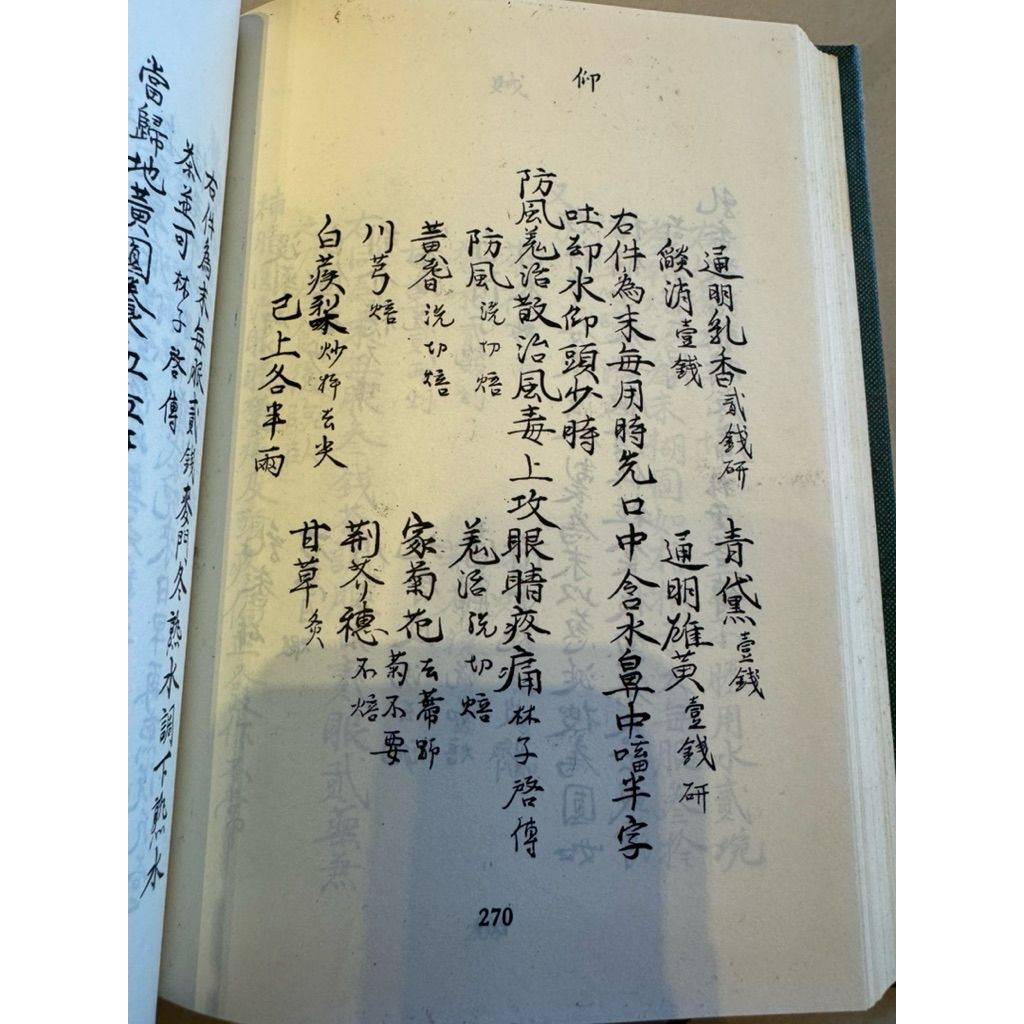 仰
通明乳香貳錢研 青黛壹錢
燄消壹錢 通明雄黃壹錢研
右件為末每用時先口中含水鼻中㗜半字
吐却水仰頭少時
防風羌活散治風毒上攻眼睛疼痛林子啓傳
防風洗切焙 羌活洗切焙
黃耆洗切焙 家菊花去蒂野菊不要
川芎焙 荊芥穗不焙
白蒺梨炒拌去尖 甘草炙
已上各半兩
270
右件為末每服貳錢麥門冬熟水調下熟水
茶並可林子啓傳
當歸地黃圓